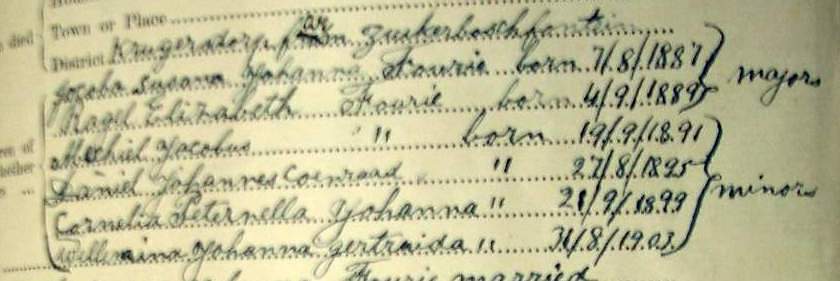 died Town or Place
District Krugersdorp farm Zuikerboschfontein
Jacoba Susana Yohanna Fourie born 7/8/1887 majors
Ragel Elizabeth Fourie born 4/9/1889
Mechiel Jacobus " born 19/9/1891
Daniel Johannes Coenraad " 27/8/1895
Cornelia Peternella Yohanna " 21/9/1899 minors
Willemina Yohanna gertruida " 31/8/1903
Fourie married